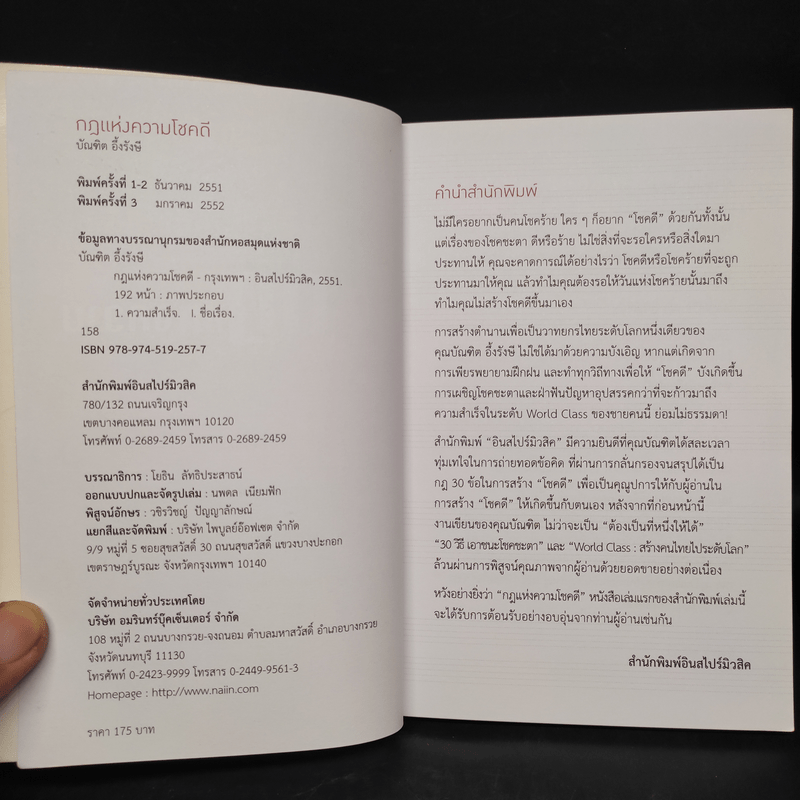 กฎแห่งความโชคดี
บัณฑิต อึ้งรังษี
พิมพ์ครั้งที่ 1-2 ธันวาคม 2551
พิมพ์ครั้งที่ 3 มกราคม 2552
ข้อมูลทางบรรณานุกรมของสำนักหอสมุดแห่งชาติ
บัณฑิต อึ้งรังษี
กฎแห่งความโชคดี - กรุงเทพฯ : อินสไปร์มิวสิค, 2551.
192 หน้า : ภาพประกอบ
1. ความสำเร็จ. I. ชื่อเรื่อง.
158
ISBN 978-974-519-257-7
สำนักพิมพ์อินสไปร์มิวสิค
780/132 ถนนเจริญกรุง
เขตบางคอแหลม กรุงเทพฯ 10120
โทรศัพท์ 0-2689-2459 โทรสาร 0-2689-2459
บรรณาธิการ : โยธิน ลัทธิประสาธน์
ออกแบบปกและจัดรูปเล่ม : นพดล เนียมฟัก
พิสูจน์อักษร : วชิรวิชญ์ ปัญญาลักษณ์
แยกสีและจัดพิมพ์ : บริษัท ไพบูลย์อ๊อฟเซต จำกัด
9/9 หมู่ที่ 5 ซอยสุขสวัสดิ์ 30 ถนนสุขสวัสดิ์ แขวงบางปะกอก
เขตราษฎร์บูรณะ จังหวัดกรุงเทพฯ 10140
จัดจำหน่ายทั่วประเทศโดย
บริษัท อมรินทร์บุ๊คเซ็นเตอร์ จำกัด
108 หมู่ที่ 2 ถนนบางกรวย-จงถนอม ตำบลมหาสวัสดิ์ อำเภอบางกรวย
จังหวัดนนทบุรี 11130
โทรศัพท์ 0-2423-9999 โทรสาร 0-2449-9561-3
Homepage : http://www.naiin.com
ราคา 175 บาท
คำนำสำนักพิมพ์
ไม่มีใครอยากเป็นคนโชคร้าย ใคร ๆ ก็อยาก “โชคดี” ด้วยกันทั้งนั้น
แต่เรื่องของโชคชะตา ดีหรือร้าย ไม่ใช่สิ่งที่จะรอใครหรือสิ่งใดมา
ประทานให้ คุณจะคาดการณ์ได้อย่างไรว่า โชคดีหรือโชคร้ายที่จะถูก
ประทานมาให้คุณ แล้วทำไมคุณต้องรอให้วันแห่งโชคร้ายนั้นมาถึง
ทำไมคุณไม่สร้างโชคดีขึ้นมาเอง
การสร้างตำนานเพื่อเป็นวาทยกรไทยระดับโลกหนึ่งเดียวของ
คุณบัณฑิต อึ้งรังษี ไม่ใช่ได้มาด้วยความบังเอิญ หากแต่เกิดจาก
การเพียรพยายามฝึกฝน และทำทุกวิถีทางเพื่อให้ “โชคดี” บังเกิดขึ้น
การเผชิญโชคชะตาและฝ่าฟันปัญหาอุปสรรคกว่าที่จะก้าวมาถึง
ความสำเร็จในระดับ World Class ของชายคนนี้ ย่อมไม่ธรรมดา!
สำนักพิมพ์ “อินสไปร์มิวสิค” มีความยินดีที่คุณบัณฑิตได้สละเวลา
ทุ่มเทใจในการถ่ายทอดข้อคิด ที่ผ่านการกลั่นกรองจนสรุปได้เป็น
กฎ 30 ข้อในการสร้าง “โชคดี” เพื่อเป็นคุณูปการให้กับผู้อ่านใน
การสร้าง “โชคดี” ให้เกิดขึ้นกับตนเอง หลังจากที่ก่อนหน้านี้
งานเขียนของคุณบัณฑิต ไม่ว่าจะเป็น “ต้องเป็นที่หนึ่งให้ได้”
“30 วิธี เอาชนะโชคชะตา” และ “World Class : สร้างคนไทยไประดับโลก”
ล้วนผ่านการพิสูจน์คุณภาพจากผู้อ่านด้วยยอดขายอย่างต่อเนื่อง
หวังอย่างยิ่งว่า “กฎแห่งความโชคดี” หนังสือเล่มแรกของสำนักพิมพ์เล่มนี้
จะได้รับการต้อนรับอย่างอบอุ่นจากท่านผู้อ่านเช่นกัน
สำนักพิมพ์อินสไปร์มิวสิค